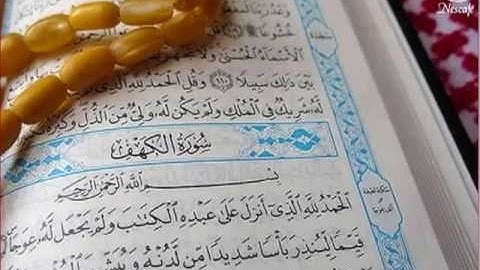 Nescafe
وَعْدُ رَبِّنَا
خُشُوعًا
الْأَسْمَاءُ الْحُسْنَىٰ وَلَا
بَيْنَ ذَٰلِكَ سَبِيلًا ۝١١٠ وَقُلِ الْحَمْدُ لِلَّهِ الَّذِي
لَّهُ شَرِيكٌ فِي الْمُلْكِ وَلَمْ يَكُن لَّهُ وَلِيٌّ مِّنَ الذُّلِّ وَكَبِّرْهُ
سُورَةُ الْكَهْفِ
بِسْمِ اللَّهِ الرَّحْمَٰنِ الرَّحِيمِ
الْحَمْدُ لِلَّهِ الَّذِي أَنزَلَ عَلَىٰ عَبْدِهِ الْكِتَابَ وَلَمْ يَجْعَل لَّهُ عِوَجًا
قَيِّمًا لِّيُنذِرَ بَأْسًا شَدِيدًا مِّن لَّدُنْهُ وَيُبَشِّرَ